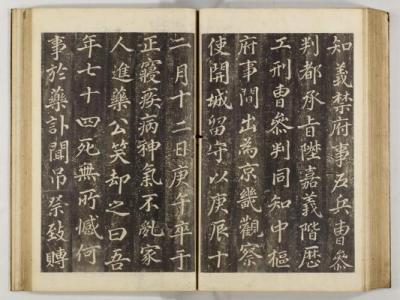 知義禁府事互兵曹參
判都承旨陞嘉義階歷
工刑曹參判同知中樞
府事間出為京畿觀察
使開城留守以庚辰十
二月十二日庚午卒于
正寢疾病神氣不亂家
人進藥公笑却之曰吾
年七十四死無所憾何
事於藥訃聞吊祭致賻